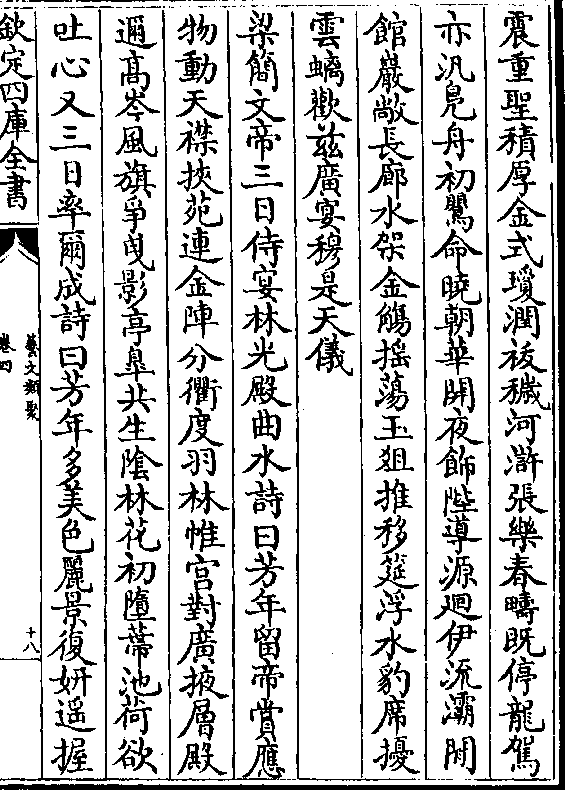 震重聖積厚金式瓊潤祓穢河滸張樂春疇既停龍駕
亦汎鳬舟初鸎命曉朝華開夜飾陛導源廻伊流灞開
館巖敞長廊水架金觴摇蕩玉俎推移筵浮水豹席擾
雲螭歡兹廣宴穆是天儀
梁簡文帝三日侍宴林光殿曲水詩曰芳年留帝賞應
物動天襟挾苑連金陣分衢度羽林帷宫對廣掖層殿
邇髙岑風旗爭曳影亭臯共生隂林花初墮蔕池荷欲
吐心又三日率爾成詩曰芳年多美色麗景復妍遥握
欽定四庫全書
藝文類聚
卷四
十八